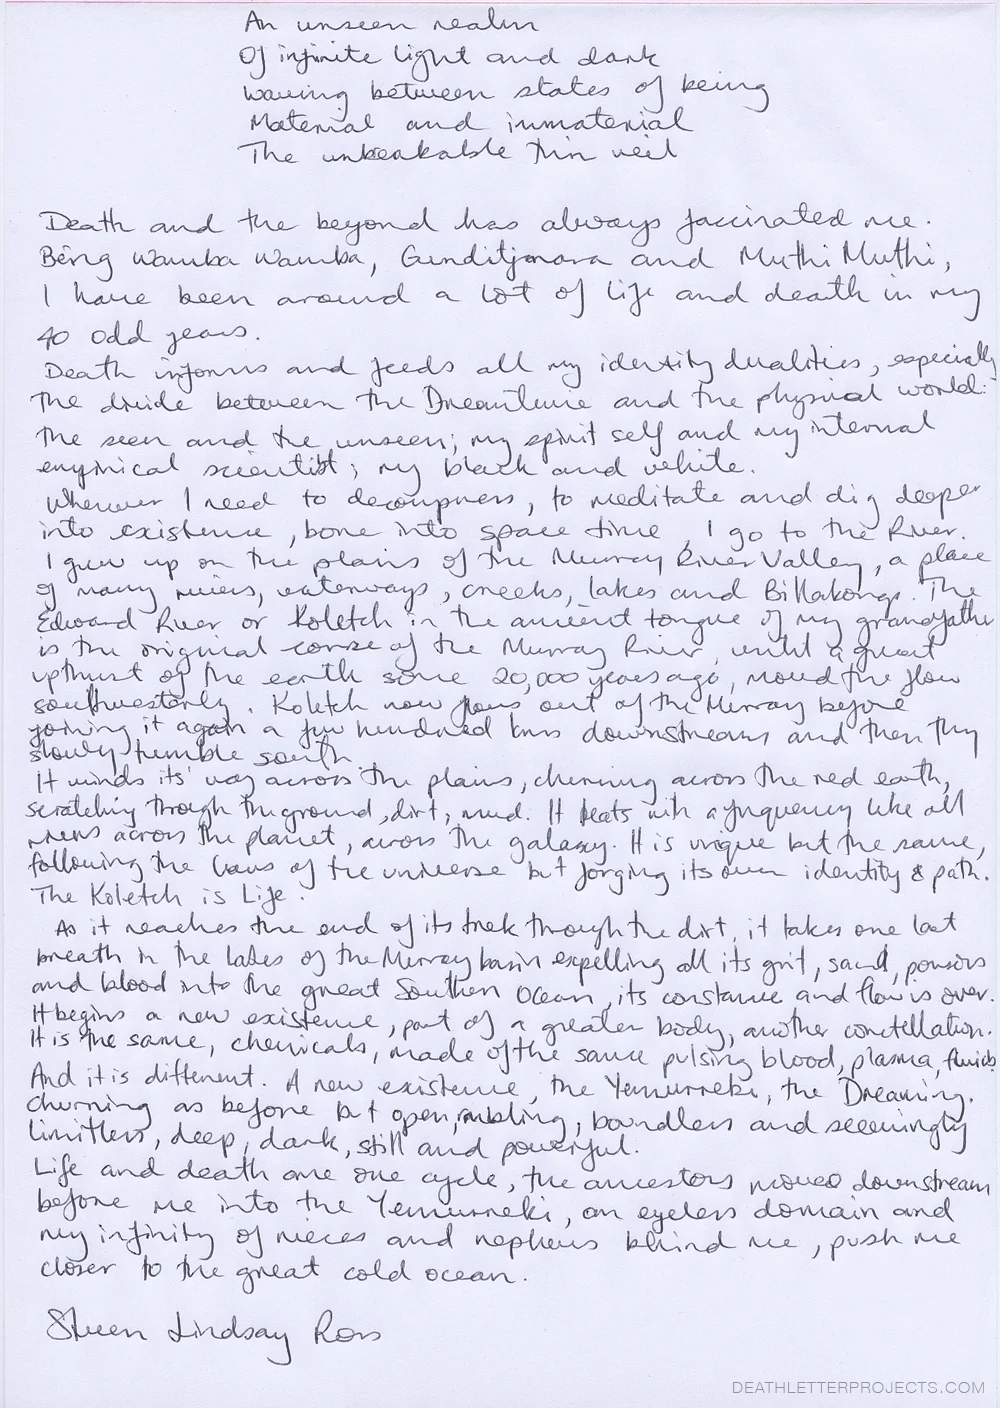 An unseen realm
Of infinite light and dark
waving between states of being
Material and inmaterial
The unbeakable thin veil
Death and the beyond has always fascinated me.
Being Wamba Wamba, Gunditjmara and Muthi Muthi,
I have been around a lot of life and death in my
40 odd years.
Death informs and feeds all my identity dualities, especially
the divide between the Dreamtime and the physical world:
the seen and the unseen; my spirit self and my internal
empirical scientist; my black and white.
Whenever I need to decompress, to meditate and dig deeper
into existence, bone into space time, I go to the River.
I grew up on the plains of the Murray River Valley, a place
of many rivers, waterways, creeks, lakes and Billabongs. The
Edward River or Koletch in the ancient tongue of my grandfather
is the original course of the Murray River, until a great
upthrust of the earth some 20,000 years ago, moved the flow
southwesterly. Koletch now flows out of the Murray before
joining it again a few hundred kms downstream and then they
slowly tumble south.
It winds its' way across the plains, churning across the red earth,
scratching through the ground, dirt, mud. It beats with a frequency like all
rivers across the planet, across the galaxy. It is unique but the same,
following the laws of the universe but forging its own identity & path.
The Koletch is Life.
As it reaches the end of its trek through the dirt, it takes one last
breath in the lakes of the Murray basin expelling all its grit, sand, poisons
and blood into the great Southern Ocean, its constance and flow is over.
It begins a new existence, part of a greater body, another constellation.
It is the same, chemicals, made of the same pulsing blood, plasma, fluids
And it is different. A new existence, the Yemurreki, the Dreaming.
Churning as before but open, rambling, boundless and seemingly
limitless, deep, dark, still and powerful.
Life and death are one cycle, the ancestors moved downstream
before me into the Yemurreki, an eyeless domain and
my infinity of nieces and nephews behind me, push me
closer to the great cold ocean.
Steven Lindsay Ross
DEATHLETTERPROJECTS.COM